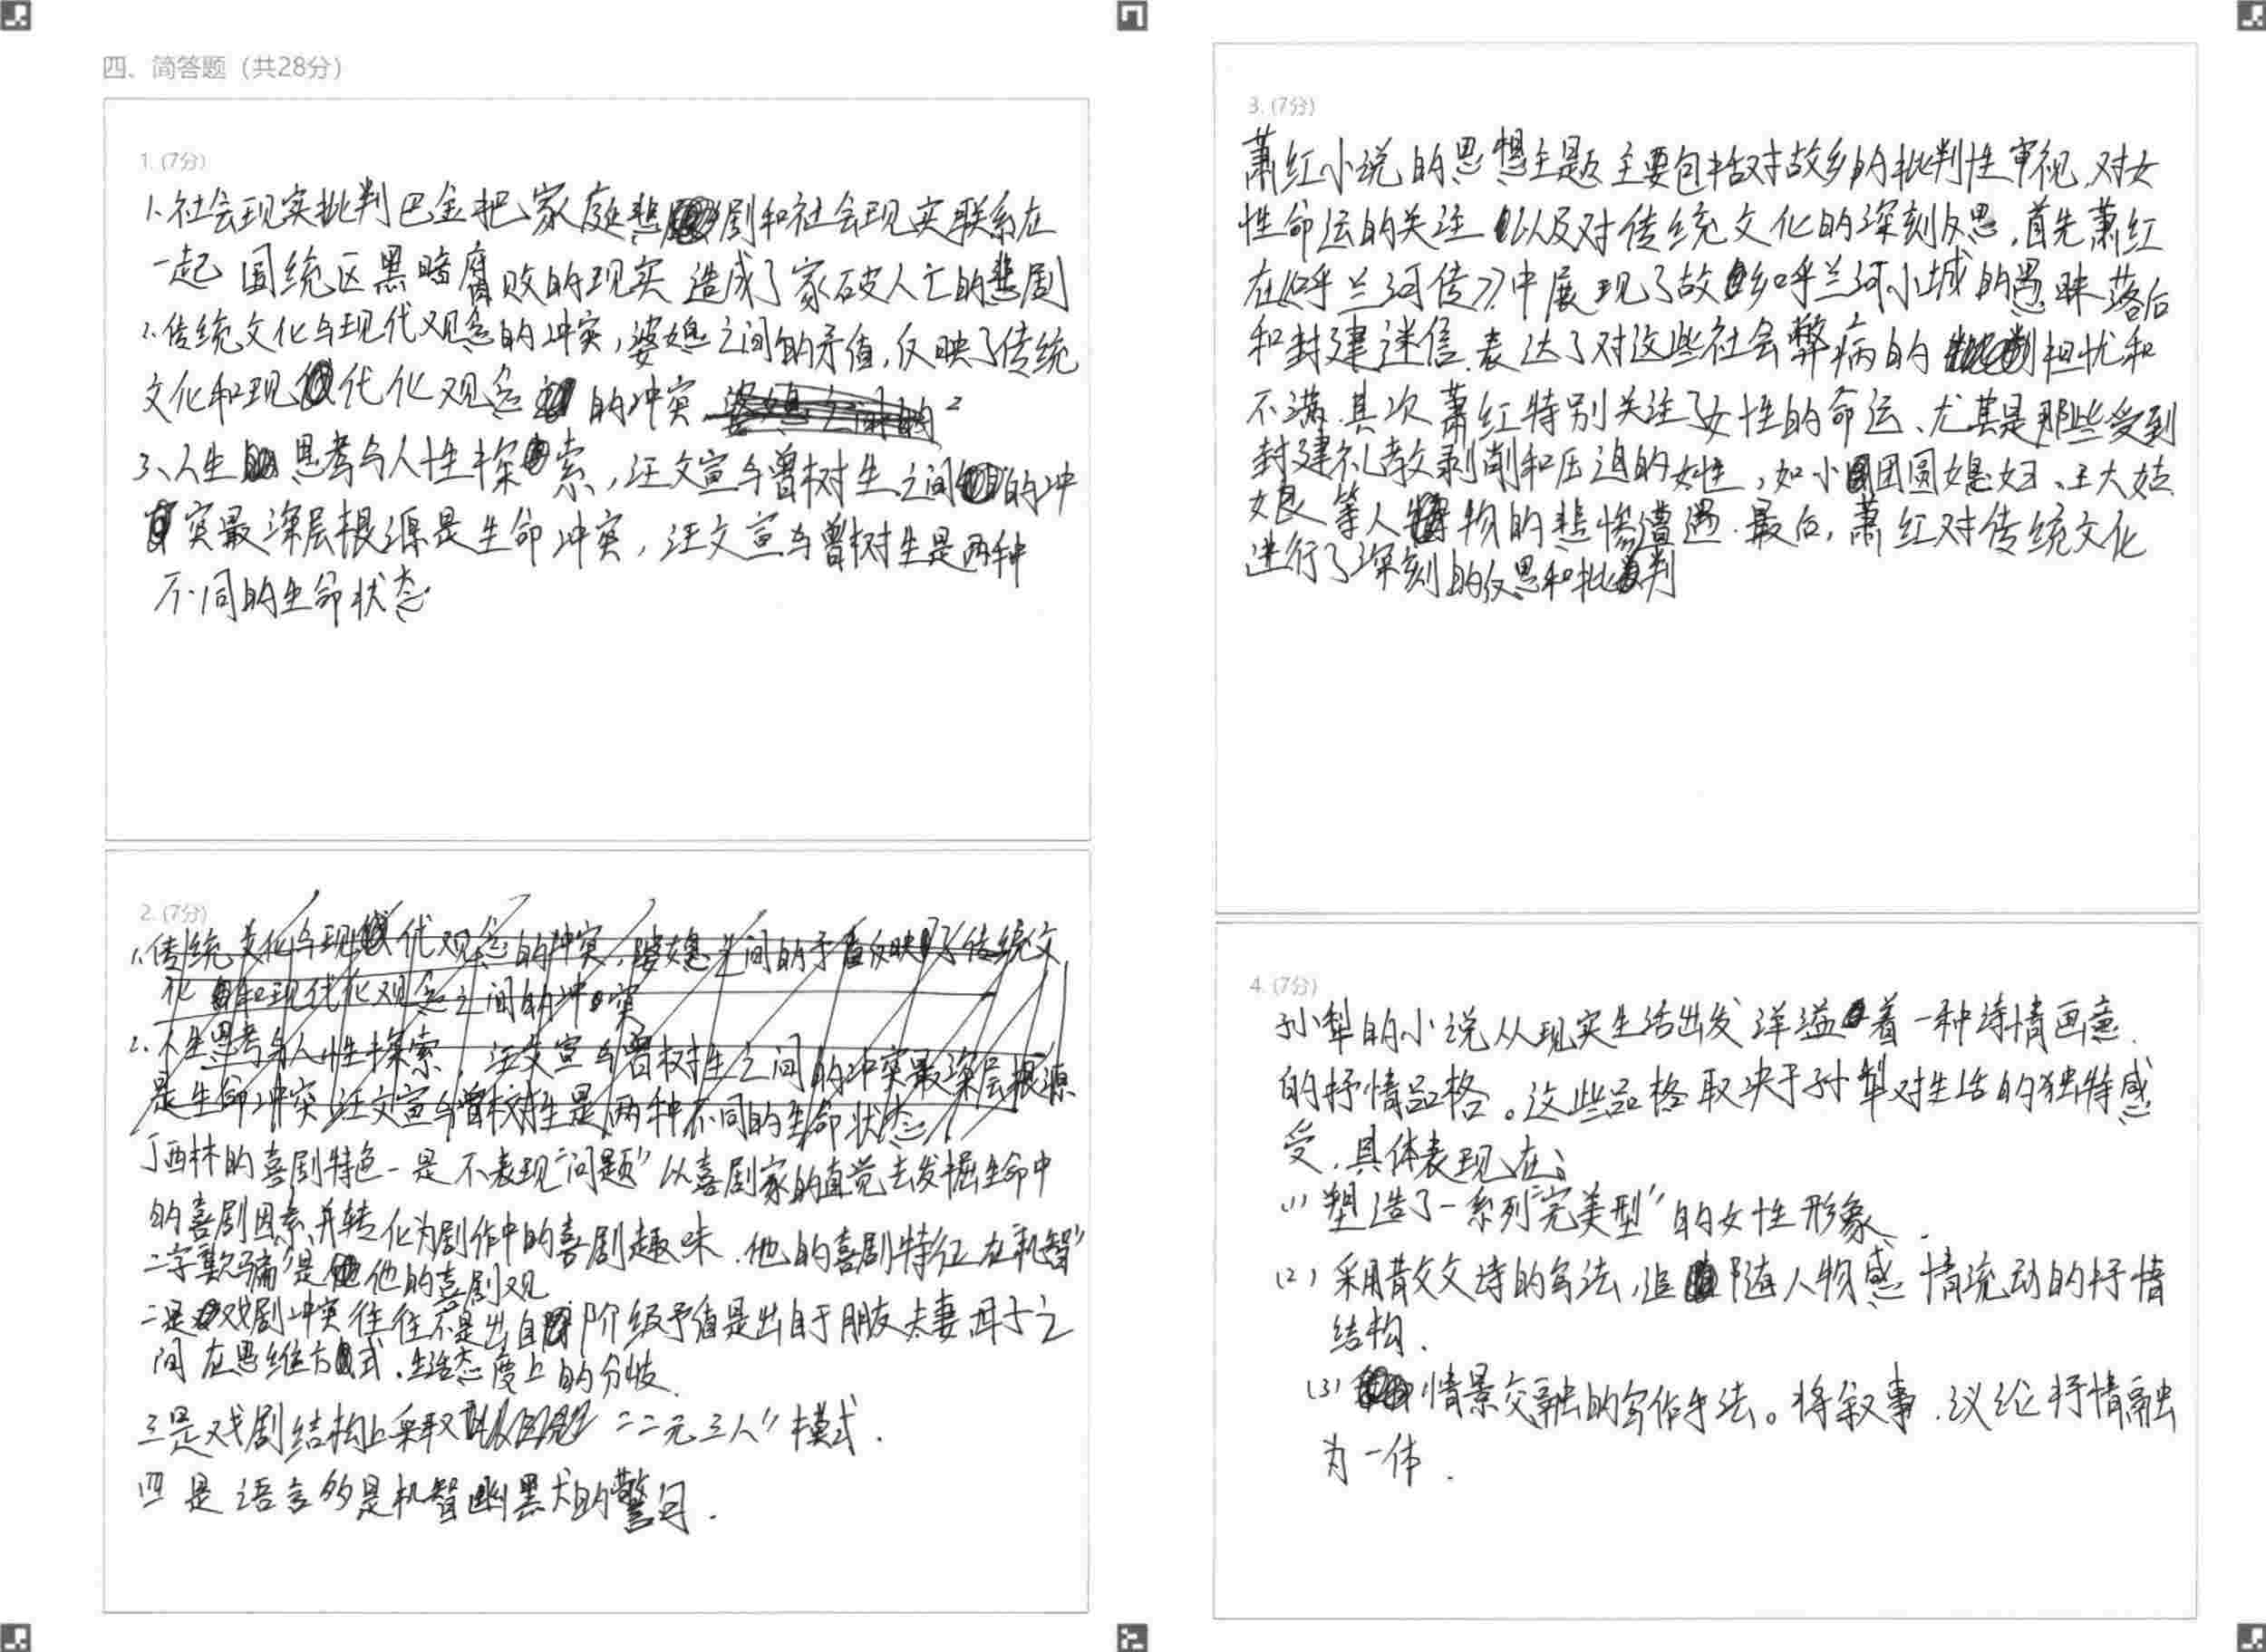 四、简答题（共28分）
1. (7分)
1、社会现实批判 巴金把家庭悲剧和社会现实联系在
一起 国统区黑暗腐败的现实 造成了家破人亡的悲剧
2.传统文化与现代观念的冲突，婆媳之间的矛值，反映了传统
文化和现代化观念的冲突
3、人生思考与人性探索，汪文宣与曾树生之间的冲
突最深层根源是生命冲突，汪文宣与曾树生是两种
不同的生命状态
2. (7分)
1.传统文化与现代观念的冲突，婆媳之间的矛盾反映了传统文
化和现代化观念之间的冲突
2.人生思考与人性探索，汪文宣与曾树生之间的冲突最深层根源
是生命冲突，汪文宣与曾树生是两种不同的生命状态
丁西林的喜剧特色一是不表现“问题”以喜剧家的直觉去发掘生命中
的喜剧因素，并转化为剧作中的喜剧趣味.他的喜剧特征在“机智”
二字“欺骗”是他的喜剧观
二是戏剧冲突往往不是出自阶级矛值是出自于朋友夫妻母子之
间在思维方式.生活态度上的分歧.
三是戏剧结构上采取“二元三人”模式.
四是语言多是机智幽默的警句.
3. (7分)
萧红小说的思想主题主要包括对故乡的批判性审视、对女
性命运的关注 以及对传统文化的深刻反思，首先萧红
在《呼兰河传》中展现了故乡呼兰河小城的愚昧落后
和封建迷信.表达了对这些社会弊病的担忧和
不满.其次萧红特别关注了女性的命运、尤其是那些受到
封建礼教剥削和压迫的女性，如小团圆媳妇、王大姑
娘等人物的悲惨遭遇.最后，萧红对传统文化
进行了深刻的反思和批判
4. (7分)
孙犁的小说从现实生活出发洋溢着一种诗情画意
的抒情品格。这些品格取决于孙犁对生活的独特感
受，具体表现在：
(1) 塑造了一系列“完美型”的女性形象.
(2) 采用散文诗的写法，追随人物感情流动的抒情
结构.
(3) 情景交融的写作手法。将叙事.议论抒情融
为一体.